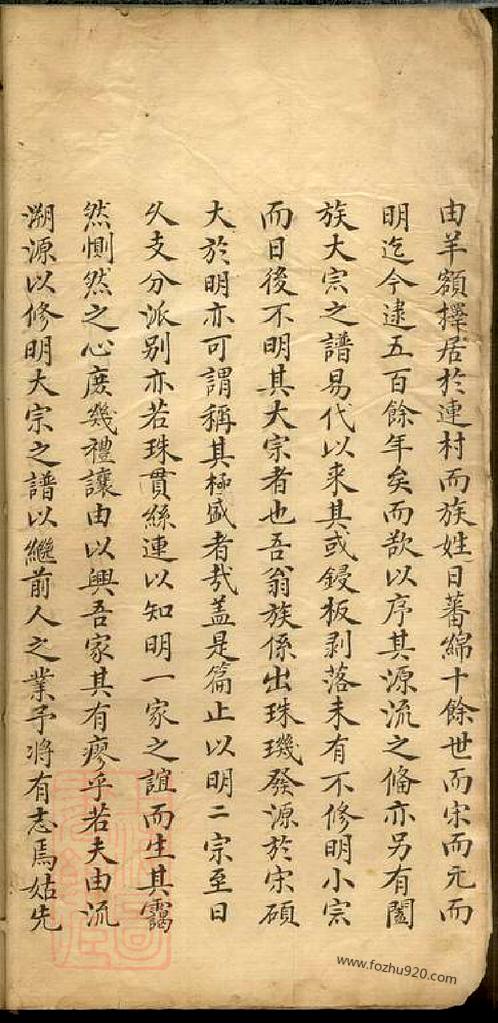 由羊額擇居於連村而族姓日蕃綿十餘世而宋而元而
明迄今逮五百餘年矣而欲以序其源流之俻亦另有闔
族大宗之譜易代以来其或鋟板剥落未有不修明小宗
而日後不明其大宗者也吾翁族係出珠璣發源於宋碩
大於明亦可謂稱其極盛者哉盖是篇止以明二宗至日
久支分派别亦若珠貫絲連以知明一家之誼而生其靄
然惻然之心庻幾禮讓由以興吾家其有瘳乎若夫由流
溯源以修明大宗之譜以繼前人之業予將有志焉姑先
www.fozhu920.com